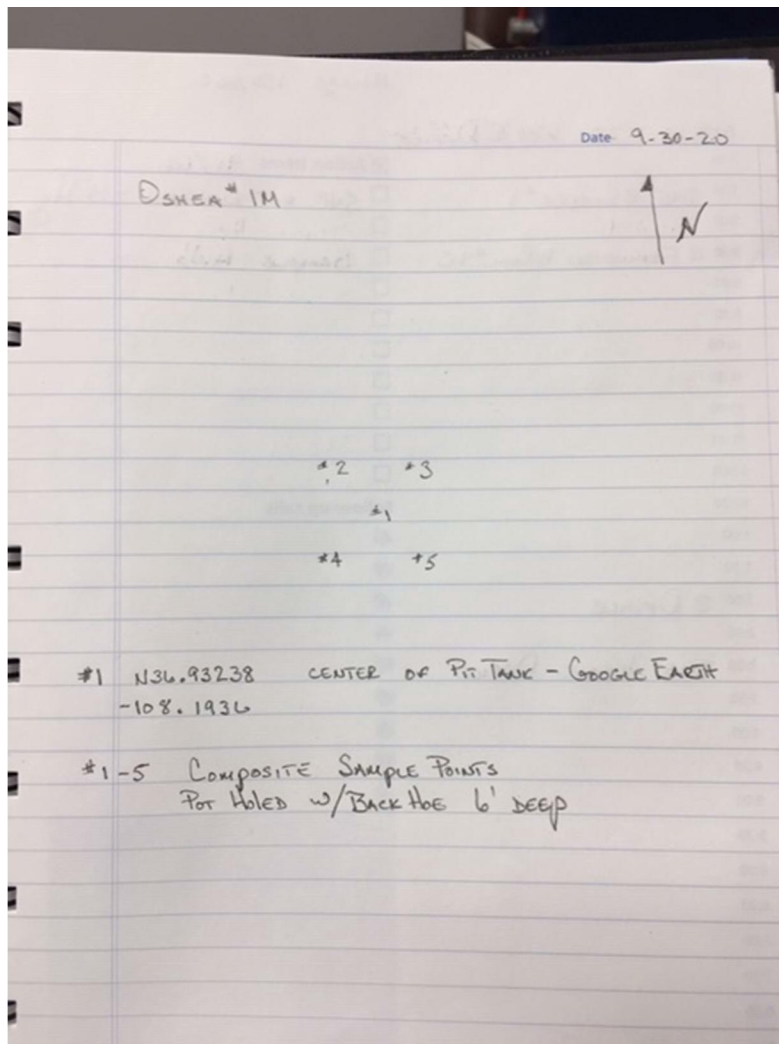 Date 9-30-20
OSHEA #1M
N
#2 #3
#1
#4 #5
#1 N36.93238 CENTER OF PIT TANK - GOOGLE EARTH
-108.1936
#1-5 COMPOSITE SAMPLE POINTS
POT HOLED W/BACK HOE 6' DEEP